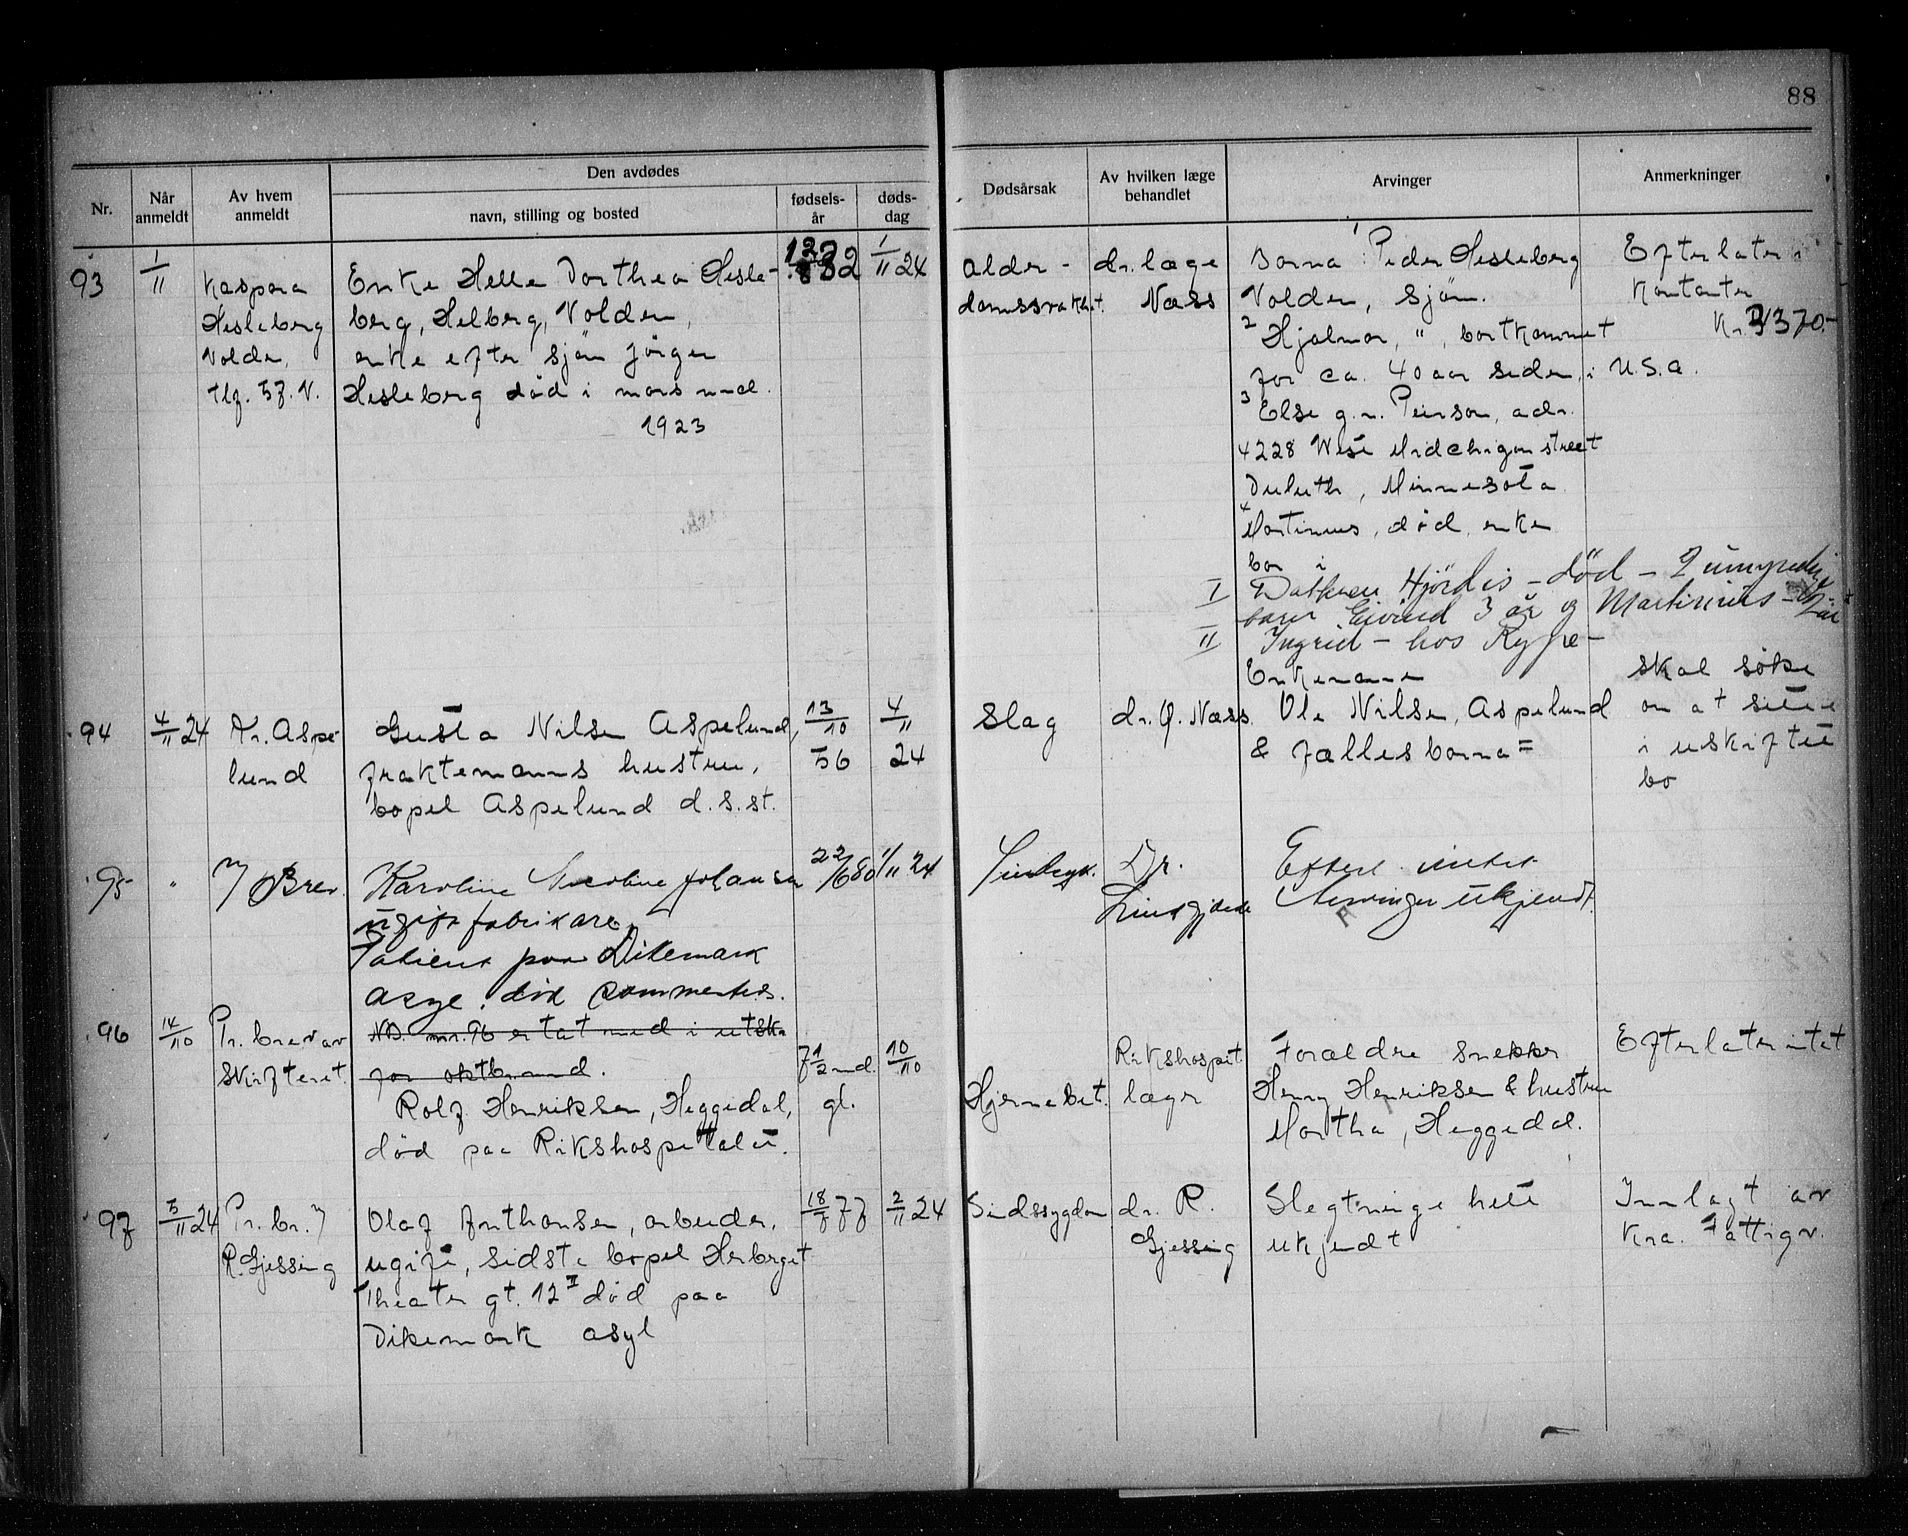 88
Nr.
Når anmeldt
Av hvem anmeldt
Den avdødes
navn, stilling og bosted
fødsels-år
døds-dag
Dødsårsak
Av hvilken læge behandlet
Arvinger
Anmerkninger
93
1/11
Kaspara
Hesleberg
Volden,
tlf. 57. V.
Enke Helle Dorthea Hesle-
berg, Helberg, Volden,
enke efter sjøm Jörgen
Hesleberg död i mars mnd.
1923
1/11 24
Alder-
domssvakhet.
dr. læge
Næss
Barna: 1 Peder Hesleberg
Volden, sjøm.
2 Hjalmar, ", bortkommet
for ca. 40 aar siden, i U.S.A.
3 Else g.m. Peirson, adr.
4228 West Midchigan street
Duluth, Minnesota
4 Martinius, död, enke
bor i
I Datteren Hjördis - död - 2 umyndig
barn Eivind 3 år og Martinius
II Ingrid - hos Rype -
Efterlater i
Kontanter
Kr. 3370.-
94
4/11 24
Fr. Aspe-
lund
Gusta Nilsen Aspelund,
fraktemanns hustru,
bopel Aspelund d.s.st.
13/10
56
4/11
24
Slag
dr. O. Næss
Enkemann
Ole Nilsen, Aspelund
& fællesbarna =
skal söke
om at sitte
i uskiftet
bo
95
"
Brev
Karoline Nicoline Johansen
ugift fabrikarb.
Patient paa Dikemark
Asyl. död sammesteds.
22/6 80
1/11 24
Sindsyk.
Dr.
Efterl. intet
Arvinger ukjendt.
96
14/10
Pr. brev av
Skifteret.
NB. nr. 96 er tat med i utskr
for oktbr mnd.
Rolf Henriksen, Heggedal,
död paa Rikshospitalet.
7 1/2 md.
gl.
10/10
Hjernebet.
Rikshospit.
læger
Foræeldre snekker
Henry Henriksen & hustru
Martha, Heggedal.
Efterlater intet
97
5/11 24
Pr. br. f
R. Gjessing
Olaf Anthonsen, arbeider,
ugift, sidste bopel Herberget
Theater gt. 12 II död paa
Dikemark asyl
18/7 77
2/11 24
Sindssygdom
dr. R.
Gjessing
Slegtninge helt
ukjendt
Innlagt av
Kra. Fattigv.